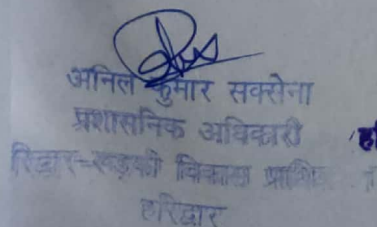 अनिल कुमार सक्सेना
प्रशासनिक अधिकारी
रिद्वार-रूड़की विकास
हरिद्वार